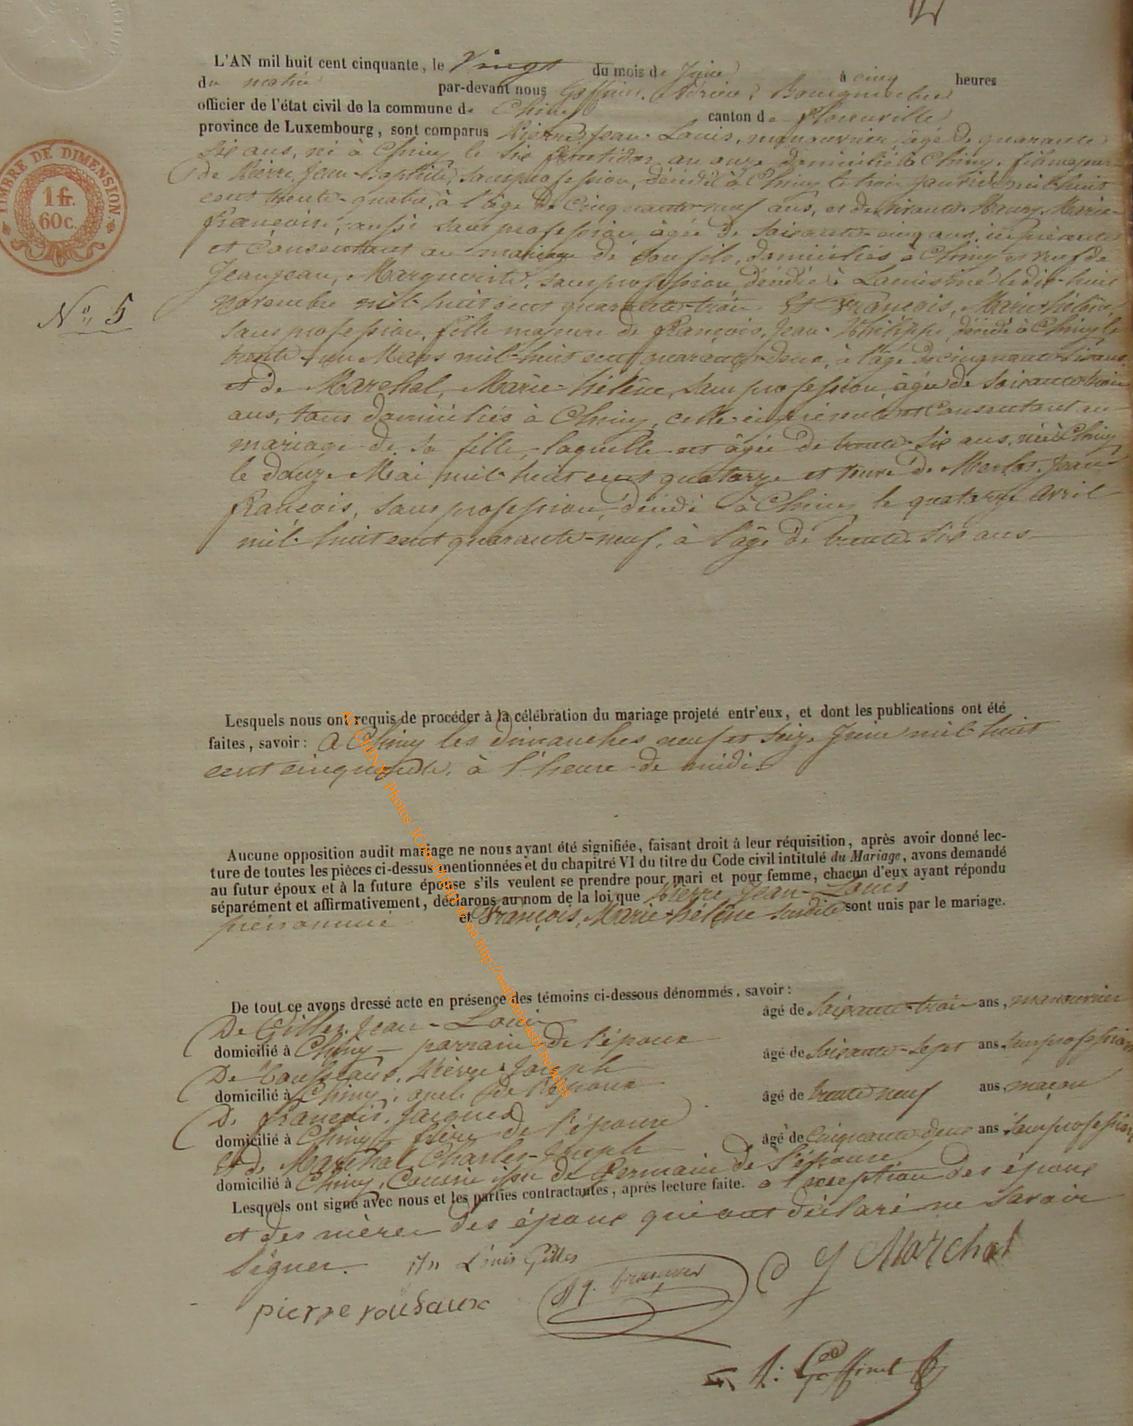 L'AN mil huit cent cinquante, le Vingt du mois de Juin à cinq heures
du matin par-devant nous Goffinet, Adrien, Bourgmestre
officier de l'état civil de la commune de Chiny canton de Florenville
province de Luxembourg, sont comparus Pierre, Jean-Louis, manouvrier, âgé de quarante
six ans, né à Chiny le six fructidor an onze domicilié à Chiny, fils majeur
TIMBRE DE DIMENSION.
1 fr.
60 c.
de Pierre, Jean-Baptiste, sans profession, décédé à Chiny le trois Janvier mil huit
cent trente-quatre, à l'âge de Cinquante-neuf ans, et de Marie-
françoise, aussi sans profession, âgée de soixante-cinq ans, ici présente
et Consentant au mariage de son fils, domiciliés à Chiny et veuf de
Jeanjean, Marguerite, sans profession, décédée à le dix-huit
novembre mil-huit cent quarante-trois. Et François, Marie-hélène,
No. 5
sans profession, fille majeure de françois, Jean-Philippe, décédé à Chiny le
trente-un Mars mil-huit cent quarante-deux, à l'âge de cinquante-six ans,
et de Marchal, Marie-hélène, sans profession, âgée de soixante-trois
ans, tous domiciliés à Chiny, celle-ci présente et Consentant au
mariage de sa fille, laquelle est âgée de trente-six ans, née à Chiny
le douze Mai mil-huit cent quatorze et veuve de Merlot, Jean-
françois, sans profession, décédé à Chiny le quatorze Avril
mil-huit cent quarante-neuf, à l'âge de trente-six ans
Lesquels nous ont requis de procéder à la célébration du mariage projeté entr'eux, et dont les publications ont été
faites, savoir : A Chiny les dimanches neuf et seize Juin mil huit
cent cinquante, à l'heure de midi.
Aucune opposition audit mariage ne nous ayant été signifiée, faisant droit à leur réquisition, après avoir donné lec-
ture de toutes les pièces ci-dessus mentionnées et du chapitre VI du titre du Code civil intitulé du Mariage, avons demandé
au futur époux et à la future épouse s'ils veulent se prendre pour mari et pour femme, chacun d'eux ayant répondu
séparément et affirmativement, déclarons au nom de la loi que Pierre Jean-Louis
prénommé et François, Marie-hélène susdite sont unis par le mariage.
De tout ce avons dressé acte en présence des témoins ci-dessous dénommés, savoir :
De Gilles, Jean-Louis âgé de soixante-trois ans, manouvrier
domicilié à Chiny parrain de l'époux
De Pierre-Joseph âgé de soixante-sept ans, sans profession
domicilié à Chiny, oncle de l'époux
De François, Jacques âgé de trente-neuf ans, maçon
domicilié à Chiny, frère de l'épouse
Et de Maréchal, Charles-Joseph âgé de Cinquante-deux ans, sans profession
domicilié à Chiny, Cousin issu de Germain de l'épouse
Lesquels ont signé avec nous et les parties contractantes, après lecture faite. à l'exception des époux
et des mères des époux qui ont déclaré ne savoir
signer. Louis Gilles
françois
Marchal
pierre
Goffinet